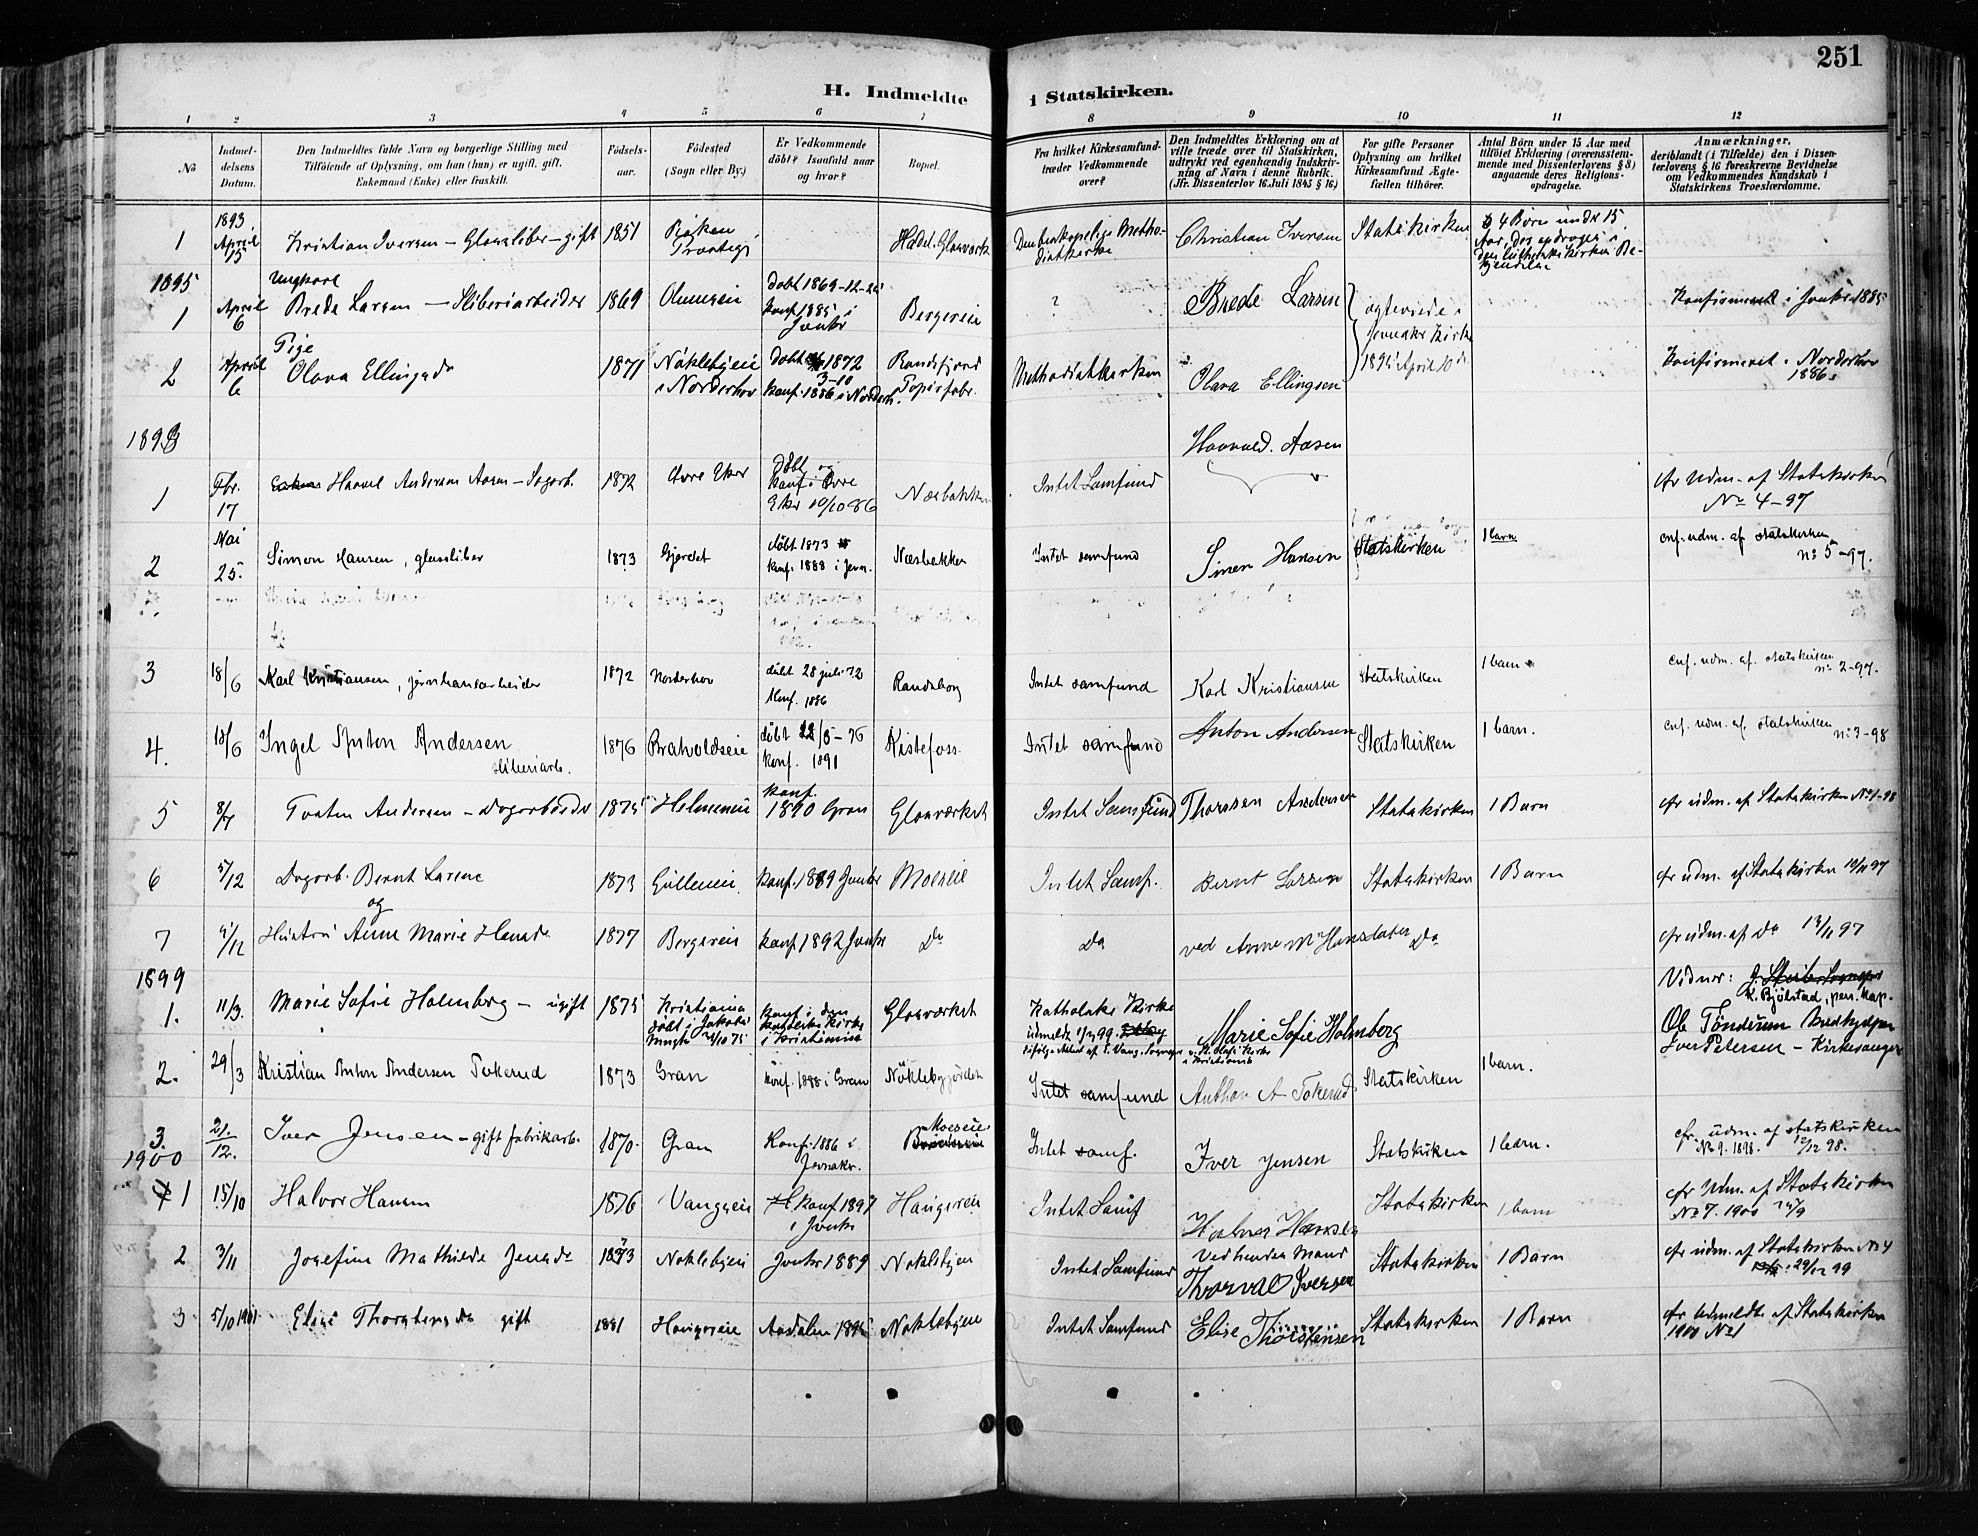 251
H. Indmeldte i Statskirken.
1 2 3 4 5 6 7 8 9 10 11 12
No
Indmel-
delsens
Datum.
Den Indmeldtes fulde Navn og borgerlige Stilling med
Tilföiende af Oplysning, om han (hun) er ugift, gift,
Enkemand (Enke) eller fraskilt.
Födsels-
aar.
Födested
(Sogn eller By.)
Er Vedkommende
döbt? Isaafald naar
og hvor?
Bopæl.
Fra hvilket Kirkesamfund
træder Vedkommende
over?
Den Indmeldtes Erklæring om at
ville træde over til Statskirken,
udtrykt ved egenhændig Indskriv-
ning af Navn i denne Rubrik.
(Jfr. Dissenterlov 16. Juli 1845 § 16.)
For gifte Personer
Oplysning om hvilket
Kirkesamfund Ægte-
fællen tilhörer.
Antal Börn under 15 Aar med
tilföiet Erklæring (overensstem-
mende med Dissenterlovens § 8)
angaaende deres Religions-
opdragelse.
Anmærkninger,
deriblandt (i Tilfælde) den i Dissen-
terlovens § 16 foreskrevne Bevidnelse
om Vedkommendes Kundskab i
Statskirkens Troeslærdomme.
1893
1 April 15 Kristian Iversen – Glassliber – gift 1851 Röken Hadel. Glasværk Christian Iversen Statskirken 4 Börn under 15 Aar
1895
1 April 6 Ungkarl Brede Larsen – Sliberiarbeider 1869 döbt 1869-12-26 konf. 1885 i Jevnkr Bergereie ? Brede Larsen ægteviede i Jevnakr Kirke 1895 April 10 Konfirmeret i Jevnkr 1885
2 April 6 Pige Olava Ellingsdr 1871 Nöklebyeie i Norderhov döbt 1872 3-10 konf. 1886 i Norderh. Randsfjord Papirfabr. Methodistkirken Olava Ellingsen Konfirmeret i Norderhov 1886
1898
1 Fbr. 17 Andersen Aasen – Sagarb. 1872 Övre Eker Döbt og konf. i Övre Eker 10/10 86 Næsbakken Intet Samfund Haavald. Aasen cfr Udm. af Statskirken No 4–97
2 Mai 25. Simon Hansen, glassliber 1873 Gjerdet döbt 1873 konf. 1888 i Jevn. Næsbakken Intet samfund Simen Hansen Statskirken 1 barn cnf. udm. af statskirken no 5–97.
3 18/6 Karl Kristiansen, jernbanearbeider 1872 Norderhov döbt 28 juli 72 Konf. 1886 Randsborg Intet samfund Karl Kristiansen Statskirken 1 barn cnf. udm. af. statskirken no 2–97.
4. 18/6 Ingel Anton Andersen sliberiarb. 1876 Bratvoldseie döbt 22/5–76 konf. 1891 Kistefoss. Intet samfund Anton Andersen Statskirken 1 barn. cnf. udm. af. statskirken no 3–98
5 8/7 Andersen – Dagarbeider 1875 konf. 1890 Gran Glasværket Intet Samfund Andersen Statskirken 1 Barn cfr udm. af Statskirken No 1–98
6 5/12 Dagarb. Bernt Larsen og 1873 Gulleneie konf. 1889 Jevnkr Moeseie Intet Samf. Bernt Larsen Statskirken 1 Barn cfr udm. af Statskirken 10/11 97
7 5/12 Hustru Anne Marie Hansdr 1877 Bergereie konf 1892 Jevnkr Do Do ved Anne M Hansdatter Do cfr udm. af Do 13/11 97
1899
1. 11/3. Marie Sofie Holmberg – ugift 1875 Kristiania döbt i Jakobs 21/10 75 konf. i den katholske Kirke i Kristiania Glasværket Katholske Kirke udmeldt Marie Sofie Holmberg Vidner: K. Bjölstad, pers. kap. Ole Tönderum Iver Petersen – Kirkesanger
2. 29/3 Kristian Anton Andersen Tokerud 1873 Gran konf. 1888 i Gran Nöklebygjordet Intet samfund Anthon A Tokerud Statskirken 1 barn.
3. 21./12. Iver Jensen – gift fabrikarb. 1870. Gran Konf. 1886 i Jevnakr. Moeseie Intet samf. Iver Jensen Statskirken 1 barn. cfr. udm. af statskirken No 9. 1898. 12/12 98.
1900
1 15/10 Halvor Hansen 1876 Vangseie konf 1897 i Jevnkr Haugereie Intet Samf Halvor Hansen Statskirken 1 barn cfr Udm. af Statskirken No 7. 1900
2 3/11 Josefine Mathilde Jensdr 1873 Noklebyeie Jevnkr 1889 Noklebyeie Intet Samfund Ved hendes Mand Thorval Iversen Statskirken 1 Barn cfr udm. af Statskirken No 4 29/12 99
3 5/10 1901 Elise Thorstensdr gift 1881 Haugereie Aadalen 1895 Noklebyeie Intet Samfund Elise Thorstensen Statskirken 1 Barn cfr Udmeldte af Statskirken 1900 No 1